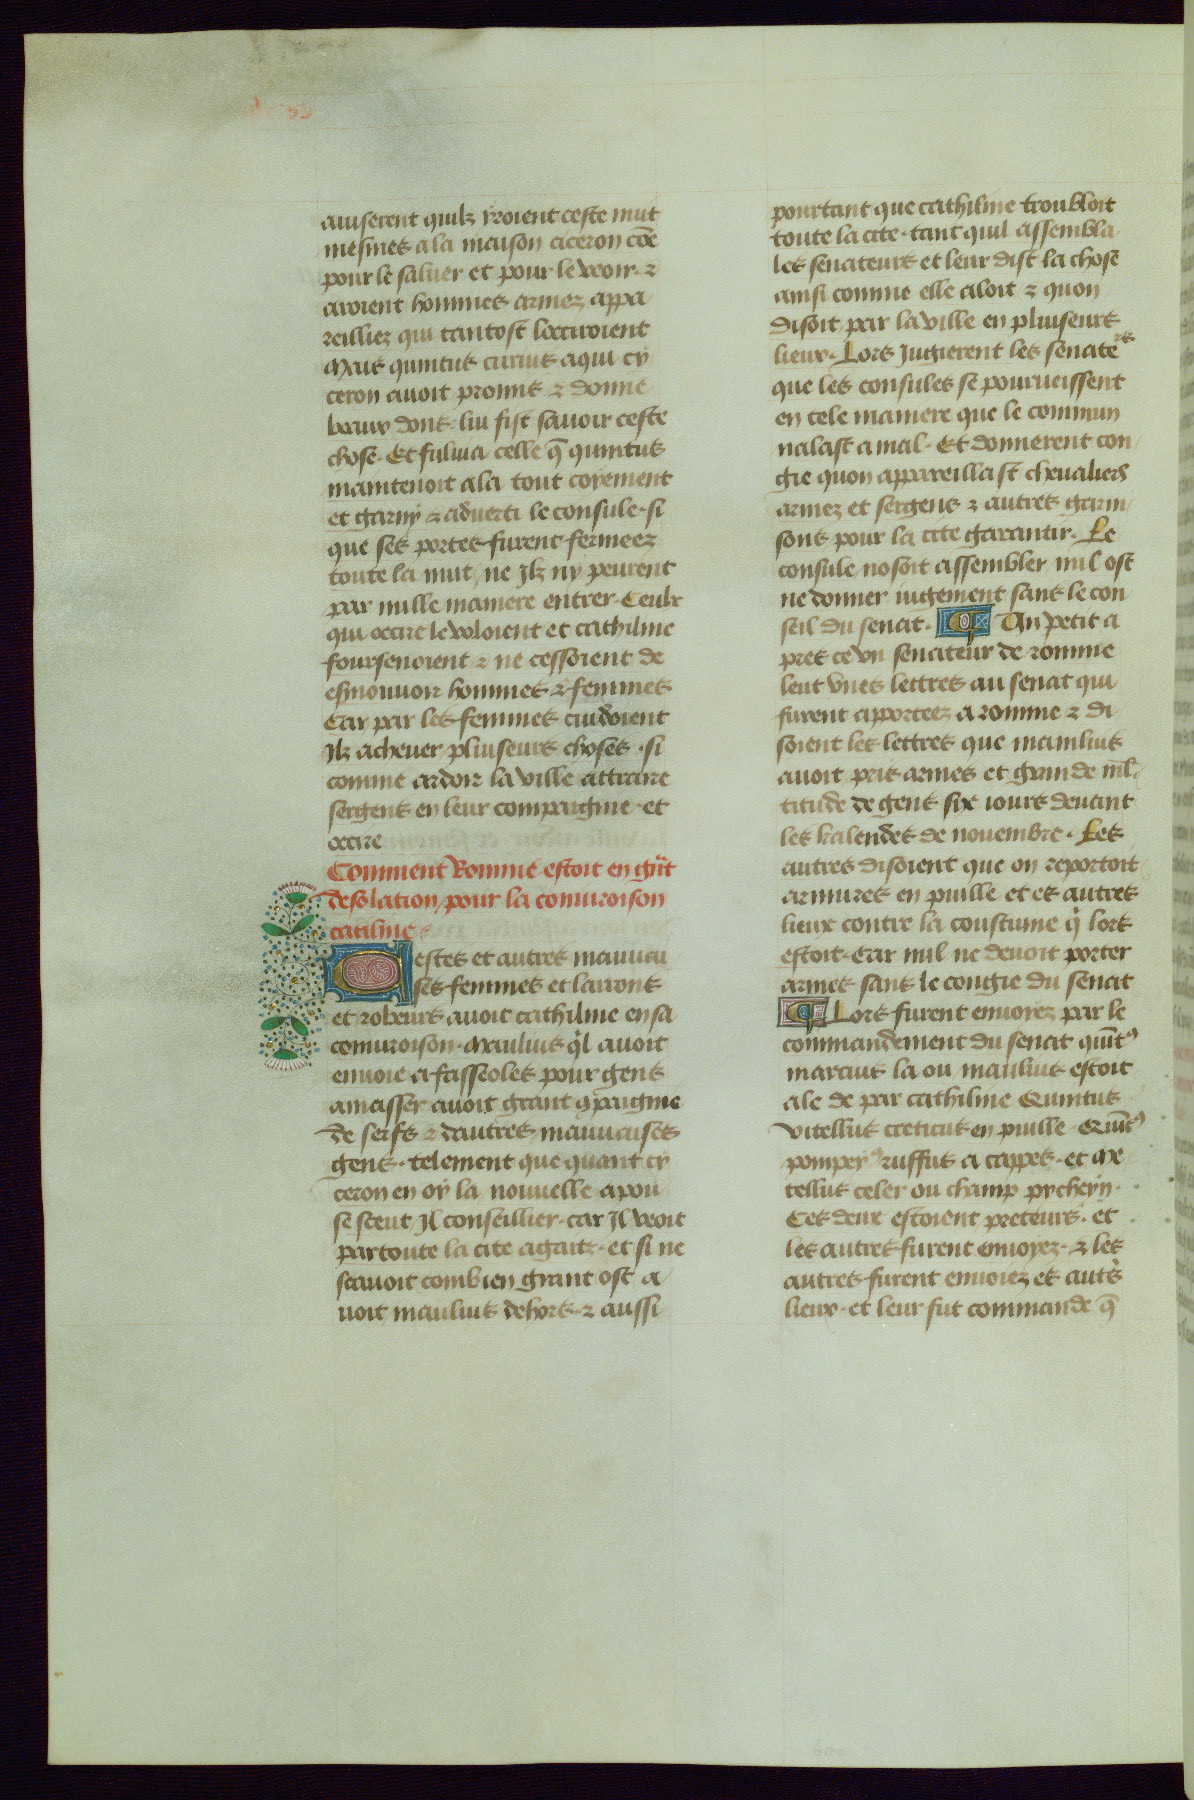 auiserent quilz yroient ceste nuit
mesmes a la maison ciceron cōe
pour le saluer et pour le veoir · ⁊
avoient hommes armez appa
reilliez qui tantost locciroient
Mais quintus curius a qui cy
ceron auoit promis ⁊ donne
beaux dons · lui fist sauoir ceste
chose · Et fuluia celle q̄ quintus
maintenoit ala tout coyement
et garny ⁊ aduerti le consule · si
que ses portes furent fermeez
toute la nuit / ne Jlz ny peurent
par nulle maniere entrer · Ceulx
qui occire le voloient et cathiline
foursenoient ⁊ ne cessoient de
esmouuoir hommes ⁊ femmes
Car par les femmes cuidoient
Jlz acheuer pluiseurs choses · si
comme ardoir la ville attraire
sergens en leur compaignie · et
occire
Comment Romme estoit en gr̄t
desolation / pour la coniuroison
catiline
Cestes et autres mauuai
ses femmes et larrons
et robeurs auoit cathiline en sa
coniuroison · Maulius q̓l auoit
enuoie a fasseoles pour gens
amasser auoit grant ꝯpaignie
de serfs ⁊ dautres mauuaises
gens · telement que quant cy
ceron en oy la nouuelle a pou
se sceut Jl conseillier · car Jl veoit
par toute la cite agaitz · et si ne
scauoit combien grant ost a
uoit maulius dehors · ⁊ aussi
pourtant que cathiline troubloit
toute la cite · tant quil assembla
les senateurs et leur dist la chose
ainsi comme elle aloit ⁊ quon
disoit par la ville en pluiseurs
lieux · Lors Jugierent les senateʳˢ
que les consules se pourueissent
en cele maniere que le commun
nalast a mal · Et donnerent con
gie quon appareillast cheualiers
armez et sergens ⁊ autres garni
sons pour la cite garantir · Le
consule nosoit assembler nul ost
ne donner iugement sans le con
seil du senat · Un petit a
pres ce vn senateur de romme
leut vnes lettres au senat qui
furent apporteez a romme ⁊ di
soient les lettres que manlius
auoit pris armes et grande ml̄
titude de gens six iours deuant
les kalendes de nouembre · Les
autres disoient que on reportoit
armures en puille et es autres
lieux contre la coustume q̓ lors
estoit · Car nul ne deuoit porter
armes sans le congie du senat
Lors furent enuoyez par le
commandement du senat quītꝰ
marcius la ou maulius estoit
ale de par cathiline Quintus
vitellus creticus en puille · Quītꝰ
pompeyꝰ ruffus a cappes · et Me
tellus celer ou champ pycheyn ·
Ces deux estoient preteurs · et
les autres furent enuoyez · ⁊ les
autres furent enuoiez es autr̄s
lieux · et leur fut commande q̄